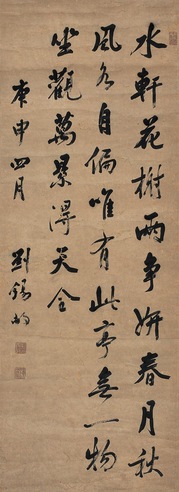 水軒花榭兩爭妍春月秋
風各自偏唯有此亭無一物
坐觀萬景得天全
庚申四月 劉錫